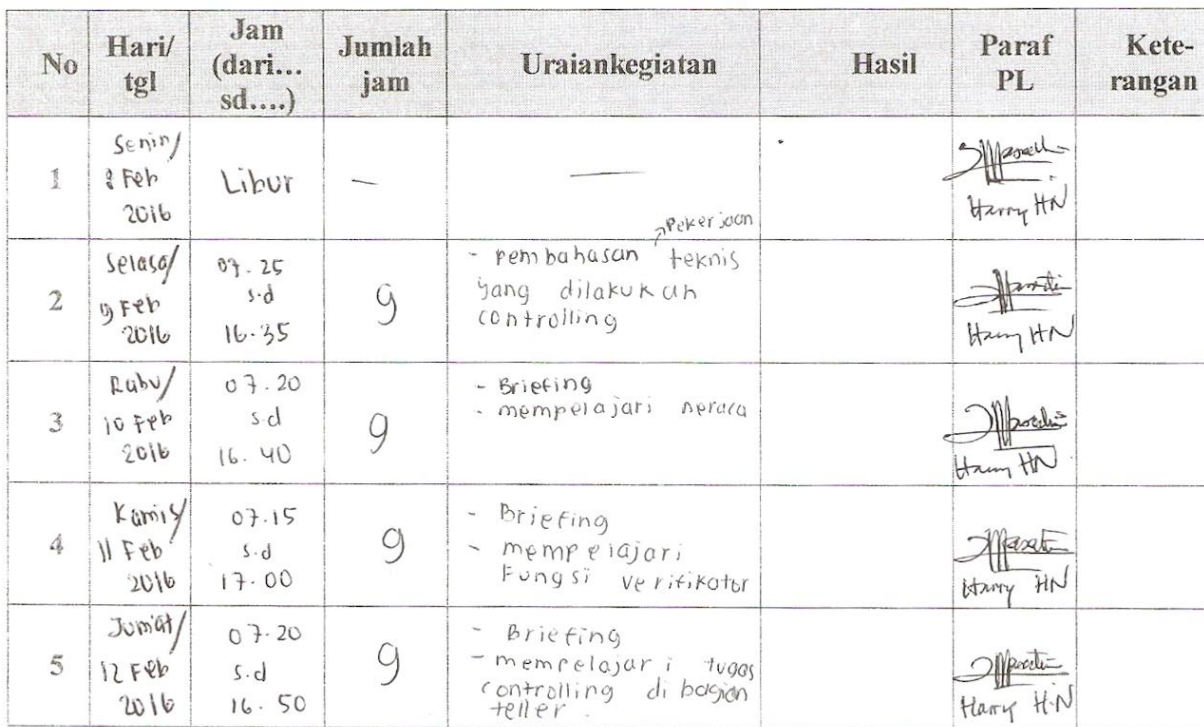 No Hari/ tgl Jam (dari... sd....) Jumlah jam Uraiankegiatan Hasil Paraf PL Kete-rangan
1
Senin/
8 Feb
2016
Libur
—
—
Harry HN
2
Selasa/
9 Feb
2016
07.25
s.d
16.35
9
- pembahasan Pekerjaan teknis
yang dilakukan
controlling
Harry HN
3
Rabu/
10 Feb
2016
07.20
s.d
16.40
9
- Briefing
- mempelajari neraca
Harry HN
4
Kamis/
11 Feb
2016
07.15
s.d
17.00
9
- Briefing
- mempelajari
Fungsi verifikator
Harry HN
5
Jum'at/
12 Feb
2016
07.20
s.d
16.50
9
- Briefing
- mempelajari tugas
controlling di bagian
teller.
Harry H.N